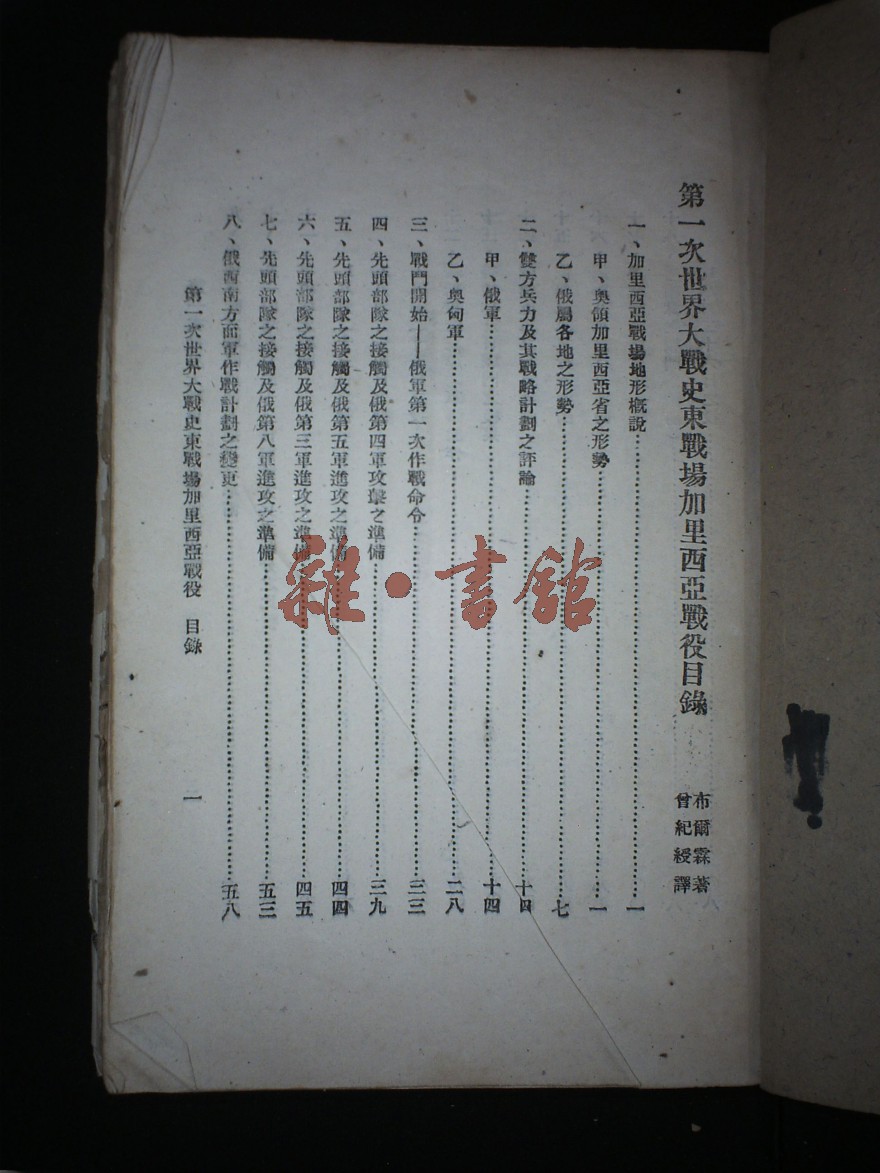 第一次世界大戰史東戰場加里西亞戰役目錄
布爾霖著
曾紀綬譯
一、加里西亞戰場地形概說……一
甲、奧領加里西亞省之形勢……一
乙、俄屬各地之形勢……七
二、雙方兵力及其戰略計劃之評論……十四
甲、俄軍……十四
乙、奧匈軍……二八
三、戰鬥開始——俄軍第一次作戰命令……三三
四、先頭部隊之接觸及俄第四軍攻擊之準備……三九
五、先頭部隊之接觸及俄第五軍進攻之準備……四四
六、先頭部隊之接觸及俄第三軍進攻之準備……四五
七、先頭部隊之接觸及俄第八軍進攻之準備……五三
八、俄西南方面軍作戰計劃之變更……五八
第一次世界大戰史東戰場加里西亞戰役 目錄
一
雜·書館